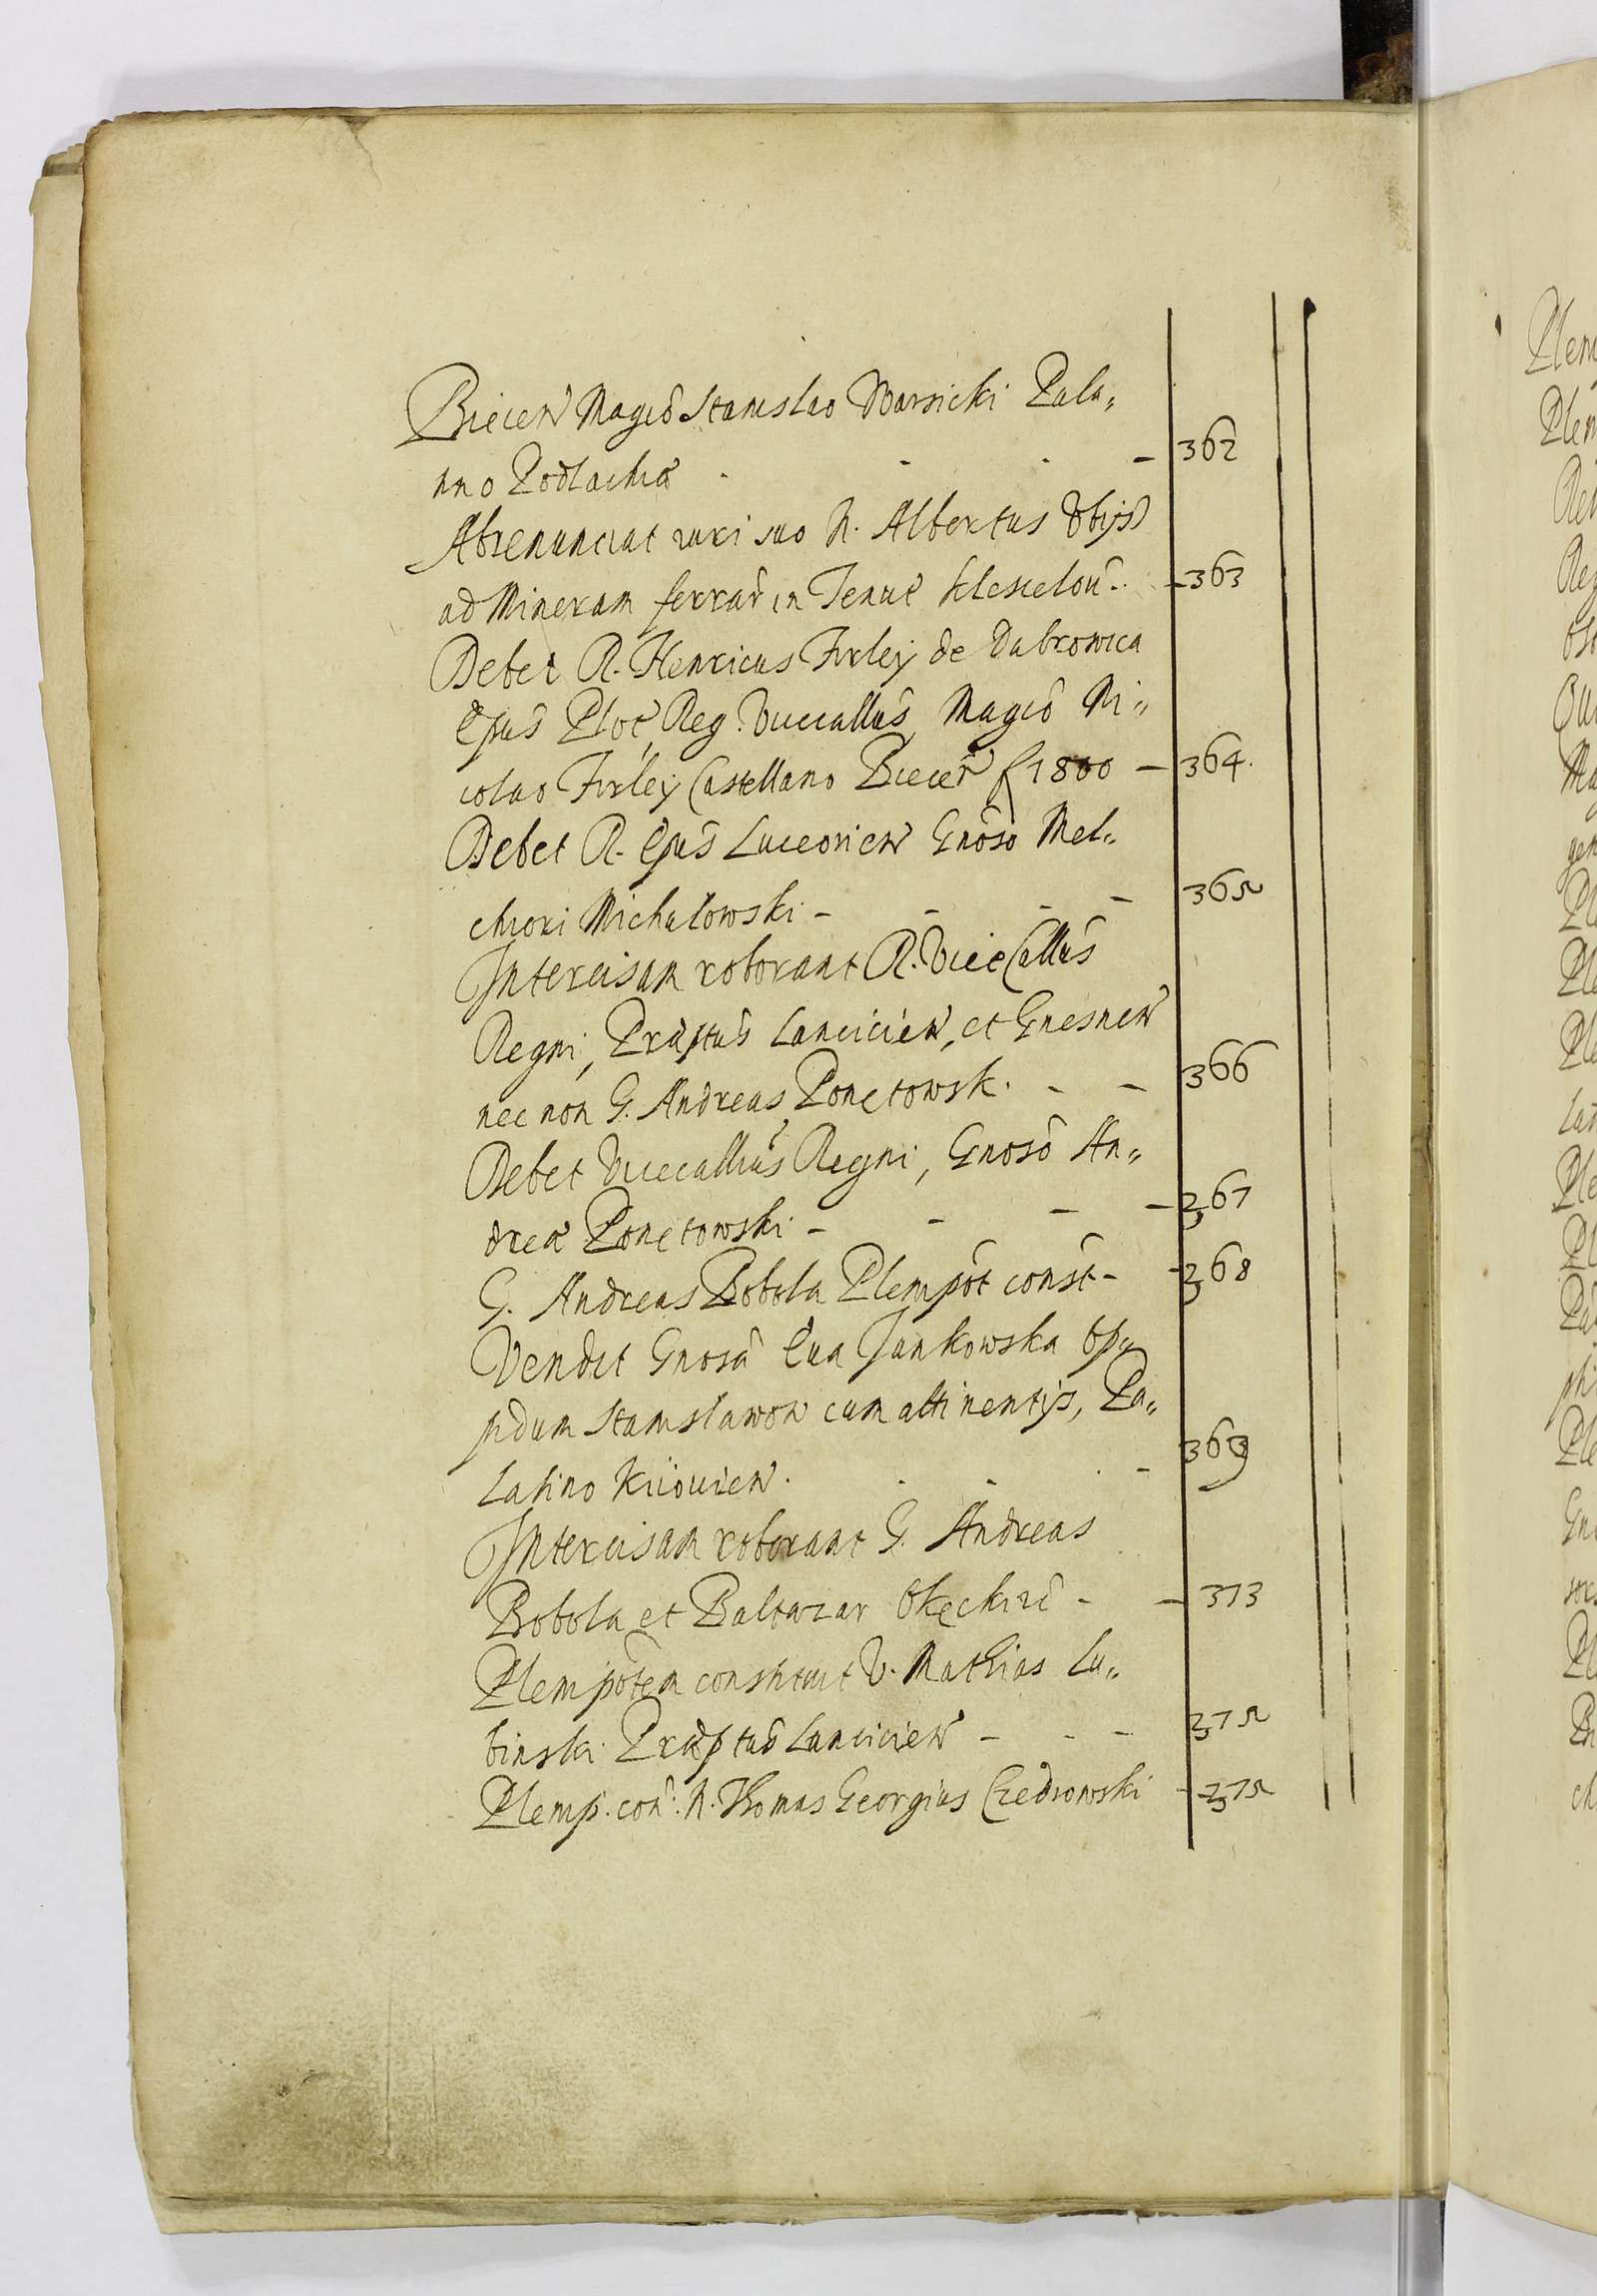 Biecen̄ Magcō Stanislao Warsicki Pala„
tino Podlachiæ - - - 362
Abrenunciat iuri suo N. Albertus
ad Mineram ferrar̄ in Tenut̄ - 363
Debet R. Henricus Firley de Dabrowica
Ep̄us Ploc̄, Reg. Vicecallus̄, Magcō Ni„
colao Firley Castellano Biecen̄ f 1800 - 364.
Debet R. Ep̄us Luceorien̄ Gnōso Mel„
chiori Michałowski - - - - 365
Intercisam roborant R. Vice Callus̄
Regni, Præptus̄ Lancicien̄, et Gnesnen̄
nec non G. Andreas Ponętowsk. - - 366
Debet Vicecallius̄ Regni, Gnosō An„
dreæ Ponętowski - - - - 367
G. Andreas Bobola Plenipōt const̄ - - 368
Vendit Gnosā Eua Jankowska Op„
pidum Stanisławow cum attinentijs, Pa„
latino Kijouien̄. - - - 369
Intercisam roborant G. Andreas
Bobola et Baltazar Okęckiie - - 373
Plenipōtem constituit V. Mathias Lu„
binski Præptus̄ Lancicien̄ - - - 375
Plenip. con̄: N. Thomas Georgius Czedrowski - 375